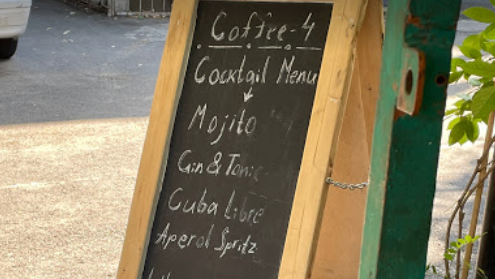 Coffee-4
Cocktail Menu
Mojito
Gin & Tonic
Cuba Libre
Aperol Spritz